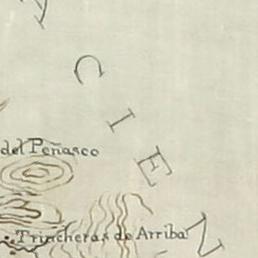 Y
C
I
E
N
del Peñasco
Trincheras de Arriba